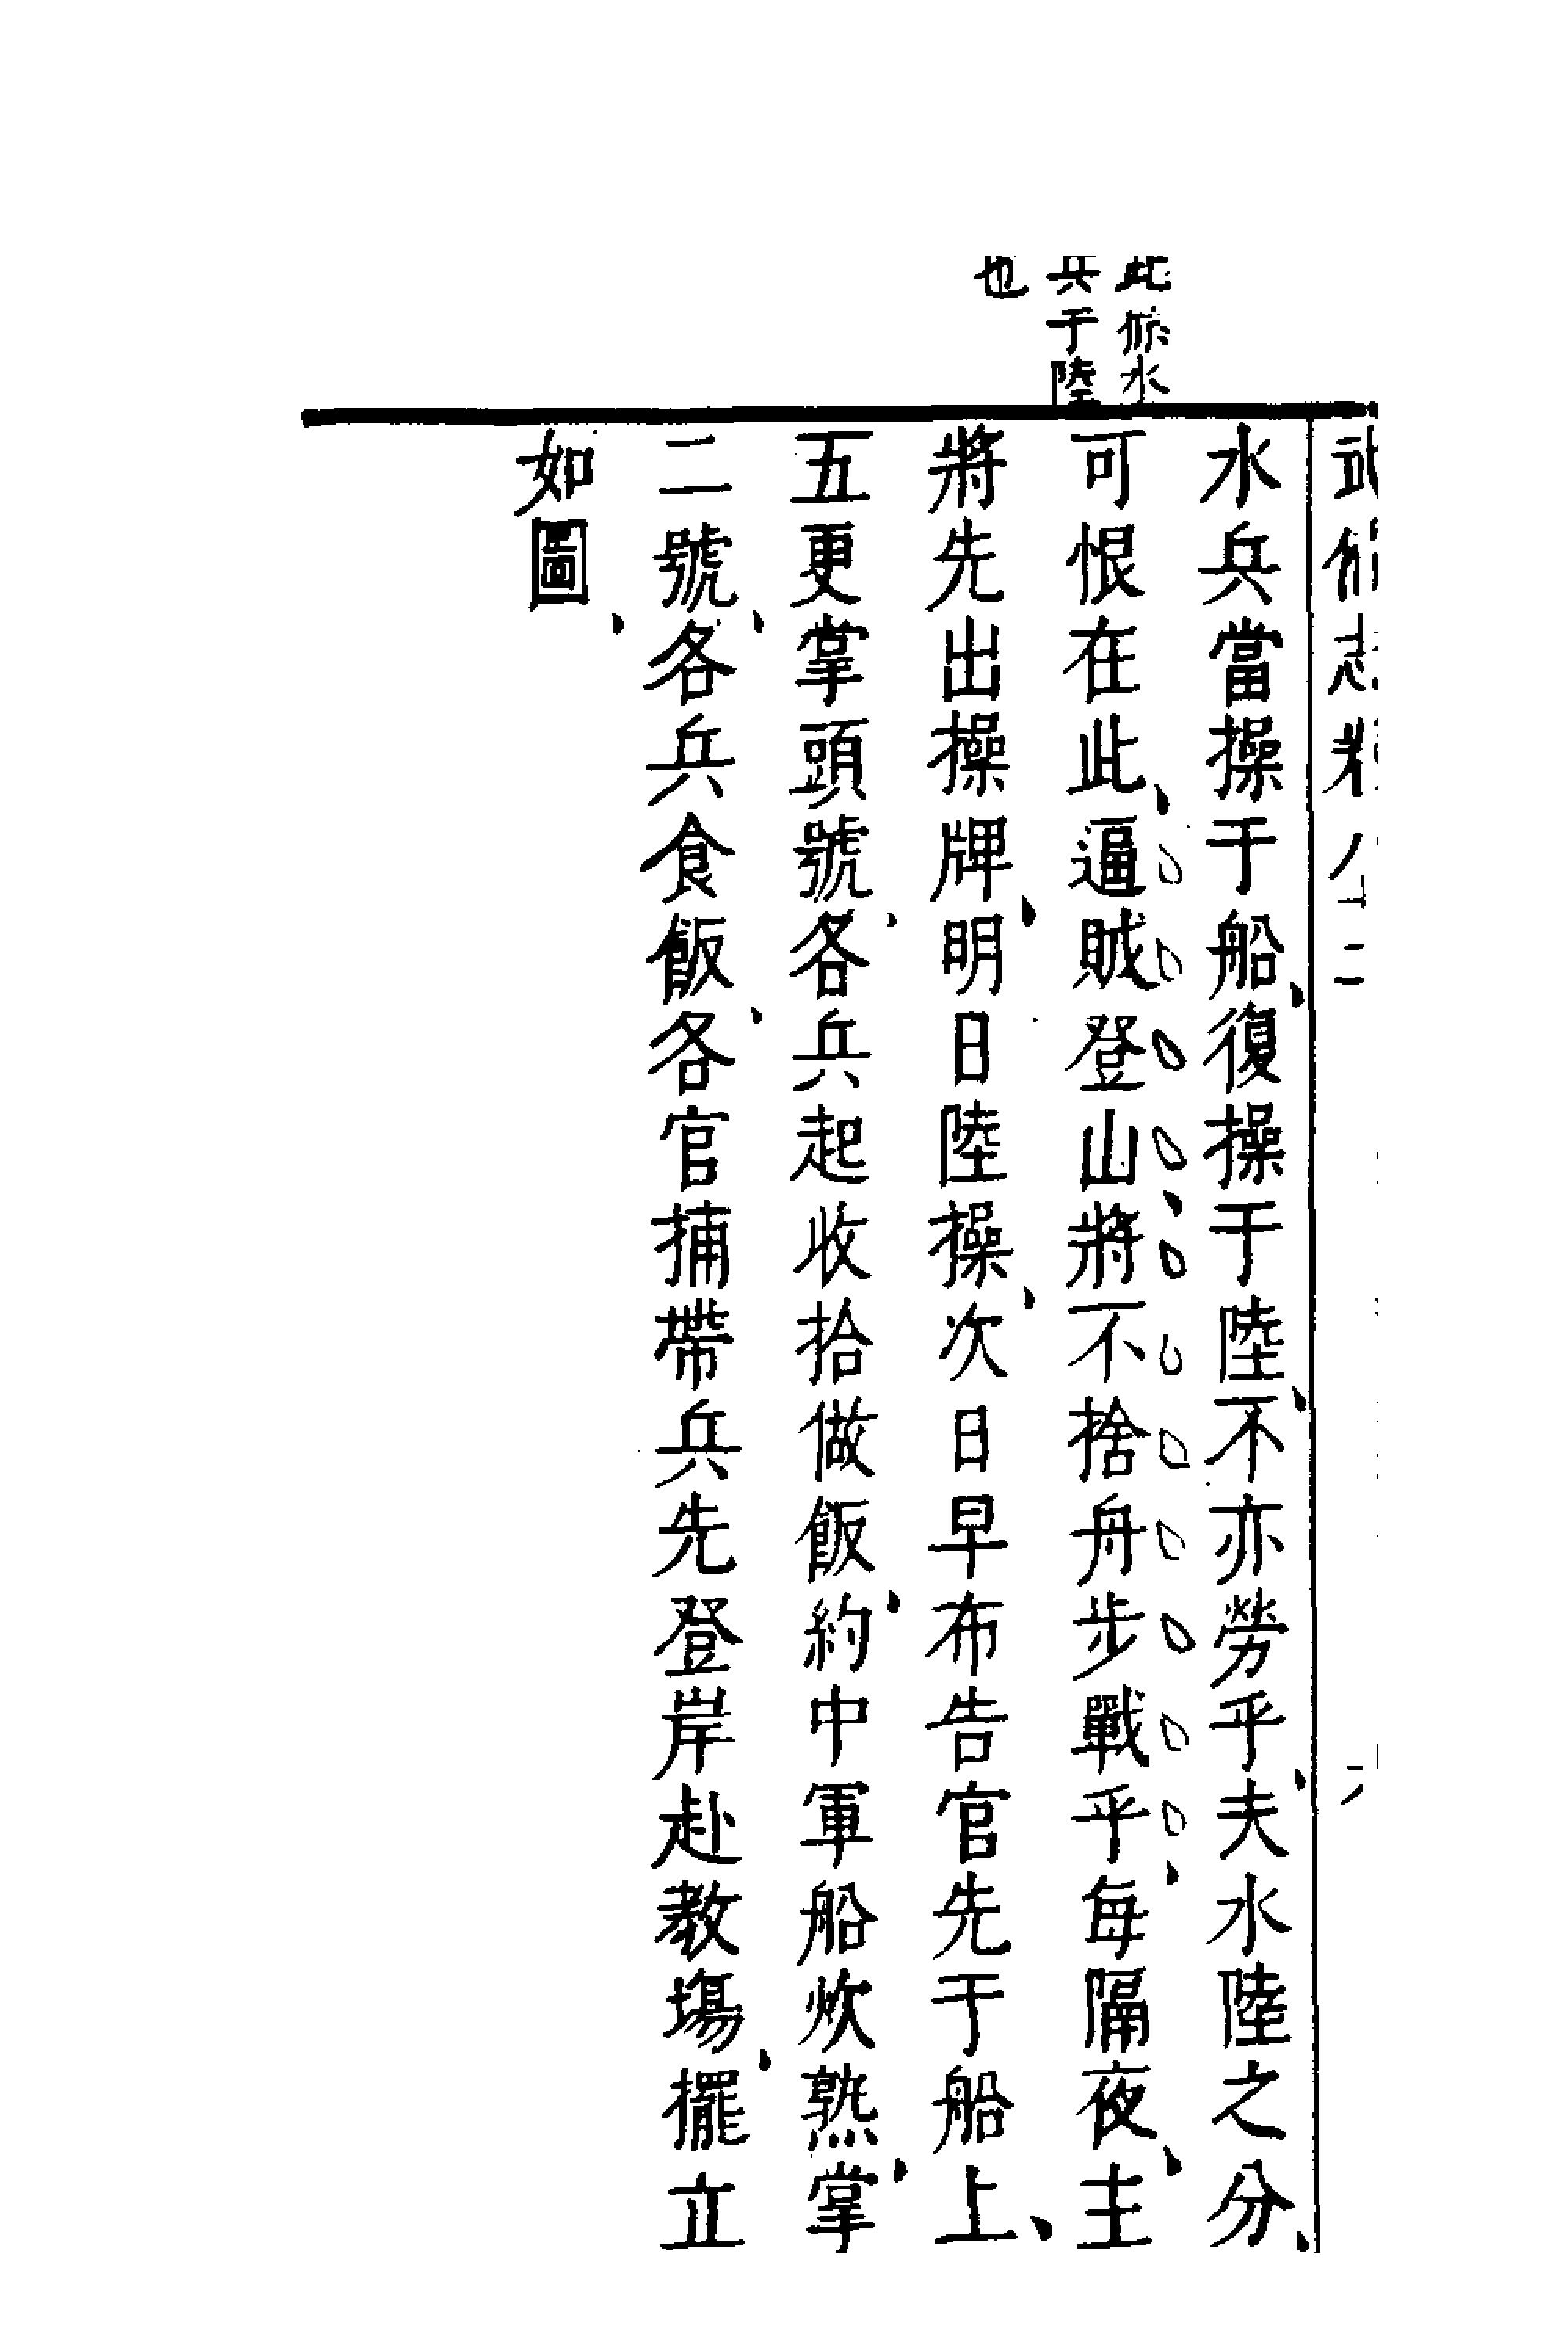 此條水
兵于陸
也
水兵當操于船、復操于陸、不亦勞乎、夫水陸之分、
可恨在此、逼賊登山、將不捨舟步戰乎、每隔夜、主
將先出操牌、明日陸操、次日早布告官先于船上、
五更掌頭號、各兵起收拾做飯、約中軍船炊熟、掌
二號、各兵食飯、各官捕帶兵先登岸赴教場、擺立
如圖、